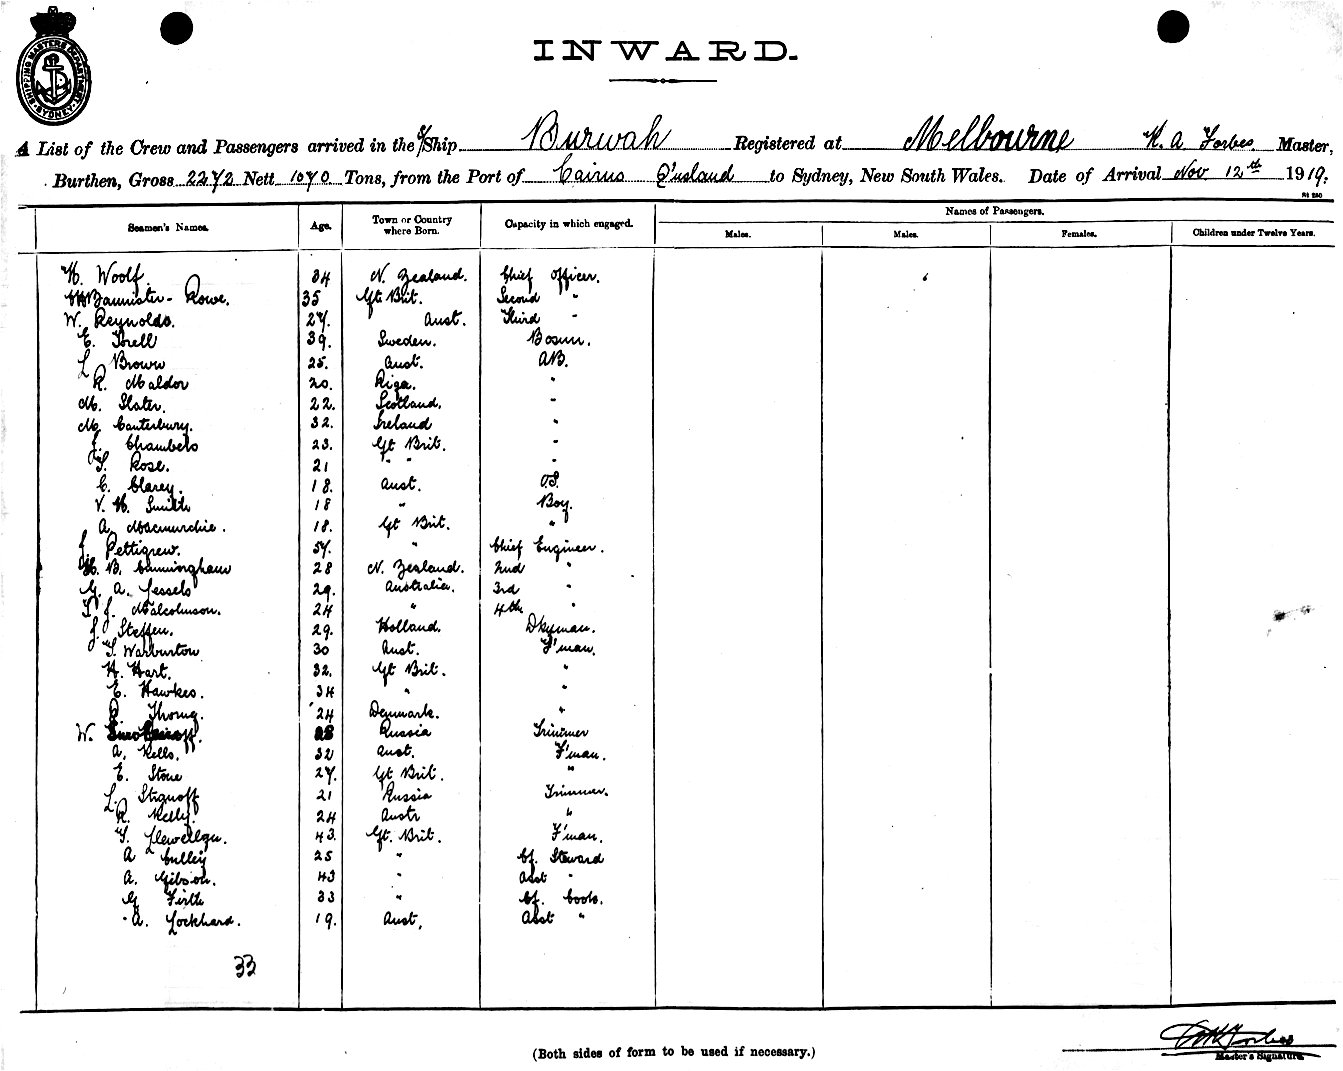 SHIPPING MASTERS DEPARTMENT SYDNEY
INWARD.
A List of the Crew and Passengers arrived in the S/Ship Burwah Registered at Melbourne H. A. Forbes Master,
Burthen, Gross 2272 Nett 1070 Tons, from the Port of Cairns Q'island to Sydney, New South Wales. Date of Arrival Nov. 12th 1919.
Seamen's Names. Age. Town or Country where Born. Capacity in which engaged. Names of Passengers.
Males. Males. Females. Children under Twelve Years.
H. Woolf. 34 N. Zealand. Chief Officer.
Bannister-Rowe. 35 Gt Brit. Second "
W. Reynolds. 27. Aust. Third "
E. Torell 39. Sweden. Bosun.
L Brown 25. Aust. AB.
R. Maldor 20. Riga. "
M. Slater. 22. Scotland. "
M. Canterbury. 32. Ireland "
J. Chambers 23. Gt Brit. "
T. Rose. 21 " " "
C. Clarey. 18. Aust. OS.
V. H. Smith 18 " Boy.
A. Macmurchie. 18. Gt Brit. "
J. Pettigrew. 57. " Chief Engineer.
H. B. Cunningham 28 N. Zealand. 2nd "
G. A. Jessels 29. Australia. 3rd "
T. J. Malcolmson. 24 " 4th "
J. Steffen. 29. Holland. Dkyman.
T. Warburton 30 Aust. F'man.
H. Hart. 32. Gt Brit. "
E. Hawkes. 34 " "
Thorng. 24 Denmark. "
W. 28 Russia Trimmer
A. Kells. 32 Aust. F'man.
E. Stone 27. Gt Brit. "
L. Stignoff 21 Russia Trimmer.
R. Kelly. 24 Austr "
T. Llewellyn. 43. Gt. Brit. F'man.
A Culley 25 " Cf. Steward
A. Gibson. 43 " Asst "
G Firth 33 " Cf. Cook.
A. Lockhard. 19. Aust. Asst "
33
(Both sides of form to be used if necessary.)
Forbes
Master's Signature.